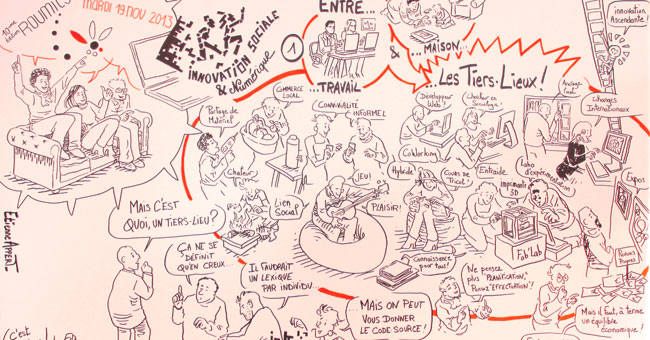 10ème
ROUMICS
MARDI 19 NOV 2013
INNOVATION SOCIALE
& Numérique
1
ENTRE...
...TRAVAIL
&
...MAISON...
...Les Tiers-Lieux !
innovation
Ascendante !
Partage de
Matériel
COMMERCE
LOCAL
CONVIVIALITÉ
INFORMEL
Développeur
Web !
Chercheur en
Sociologie !
Echanges
Internationaux
CoWorking
Chaleur
Lien
Social
JEU !
PLAISIR !
Hybride
Cours de
Tricot !
Entraide
Labo
d'expérimentation !
Imprimante
3D
Fab'Lab
Expos
Etienne Appert
MAIS C'EST
QUOI, UN TIERS-LIEU ?
ÇA NE SE
DÉFINIT
QU'EN CREUX...
IL FAUDRAIT
UN LEXIQUE
PAR INDIVIDU...
Connaissance
pour Tous !
...MAIS ON PEUT
VOUS DONNER
LE CODE SOURCE !
Ne pensez
plus "PLANIFICATION",
Pensez "EFFECTUATION" !
Mais il faut, à terme
un équilibre
économique !
C'est